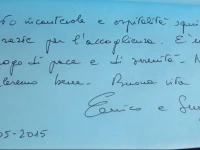 incantevole e ospitalità squi
razie per l'accoglienza. È u
ogo di pace e di serenità. N
eremo bene. Buona vita
Enrico e
05-2015